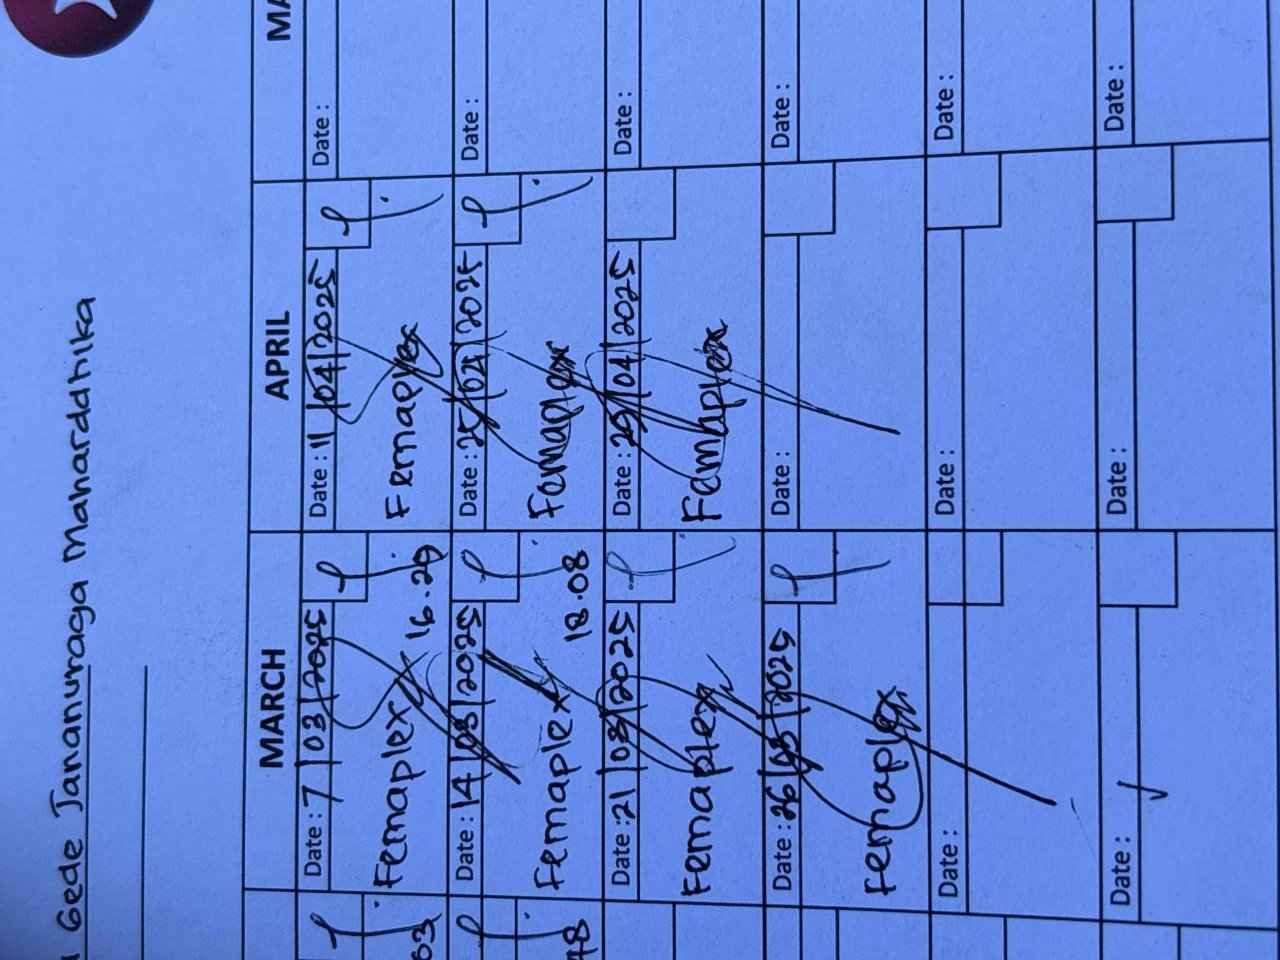 Gede Jananuraga Maharddhika
MARCH
APRIL
MA
Date : 7 / 03 / 2025
Femaplex
16.29
Date : 11 / 04 / 2025
Femaplex
Date :
Date : 14 / 03 / 2025
Femaplex
18.08
Date : 25 / 04 / 2025
Femaplex
Date :
Date : 21 / 03 / 2025
Femaplex
Date : 29 / 04 / 2025
Femaplex
Date :
Date : 26 / 03 / 2025
Femaplex
Date :
Date :
Date :
Date :
Date :
Date :
Date :
Date :
03
48